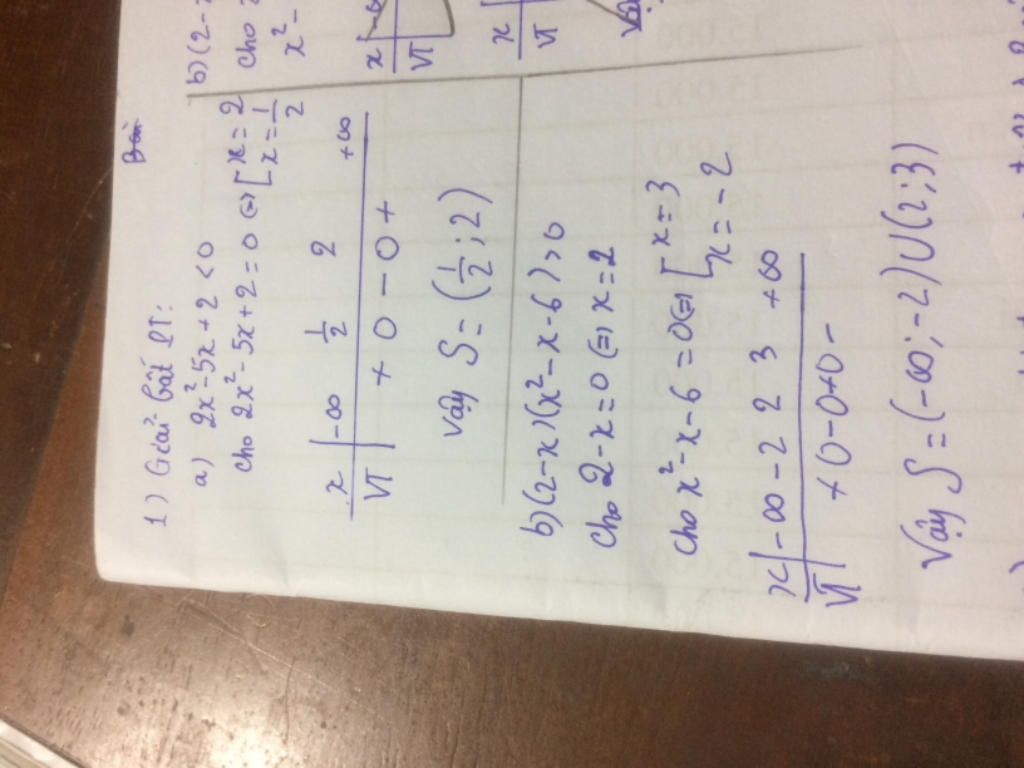 1) Giải bất PT:
a) 2x²-5x+2<0
cho 2x²-5x+2=0 (=) [x=2
x=1/2
x | -∞ 1/2 2 +∞
VT | + 0 - 0 +
Vậy S=(1/2;2)
b)(2-x)(x²-x-6)>0
cho 2-x=0 (=) x=2
cho x²-x-6=0(=) [x=3
x=-2
x | -∞ -2 2 3 +∞
VT | + 0-0+0-
Vậy S=(-∞;-2)∪(2;3)
b)(2-
cho
x²-
x
VT
x
VT